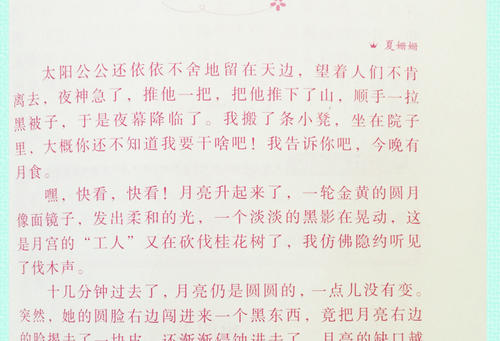 夏姗姗
太阳公公还依依不舍地留在天边，望着人们不肯
离去，夜神急了，推他一把，把他推下了山，顺手一拉
黑被子，于是夜幕降临了。我搬了条小凳，坐在院子
里，大概你还不知道我要干啥吧！我告诉你吧，今晚有
月食。
嘿，快看，快看！月亮升起来了，一轮金黄的圆月
像面镜子，发出柔和的光，一个淡淡的黑影在晃动，这
是月宫的“工人”又在砍伐桂花树了，我仿佛隐约听见
了伐木声。
十几分钟过去了，月亮仍是圆圆的，一点儿没有变。
突然，她的圆脸右边闯进来一个黑东西，竟把月亮右边
的脸揭去了一块皮，还渐渐侵蚀进去了，月亮的缺口越